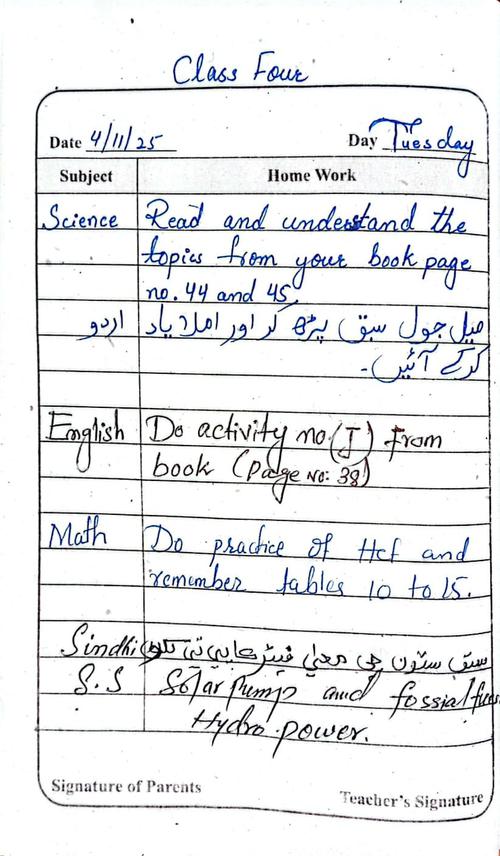 Class Four
Date 4/11/25 Day Tuesday
Subject Home Work
Science Read and understand the
topics from your book page
no. 44 and 45.
اردو میل جول سبق پڑھ کر اور املا یاد
کرکے آئیں۔
English Do activity no (J) from
book (Page No: 38)
Math Do practice of Hcf and
remember tables 10 to 15.
Sindhi سبق ستون جي معنيٰ
S.S Solar Pump and fossial fues
Hydro power.
Signature of Parents Teacher's Signature